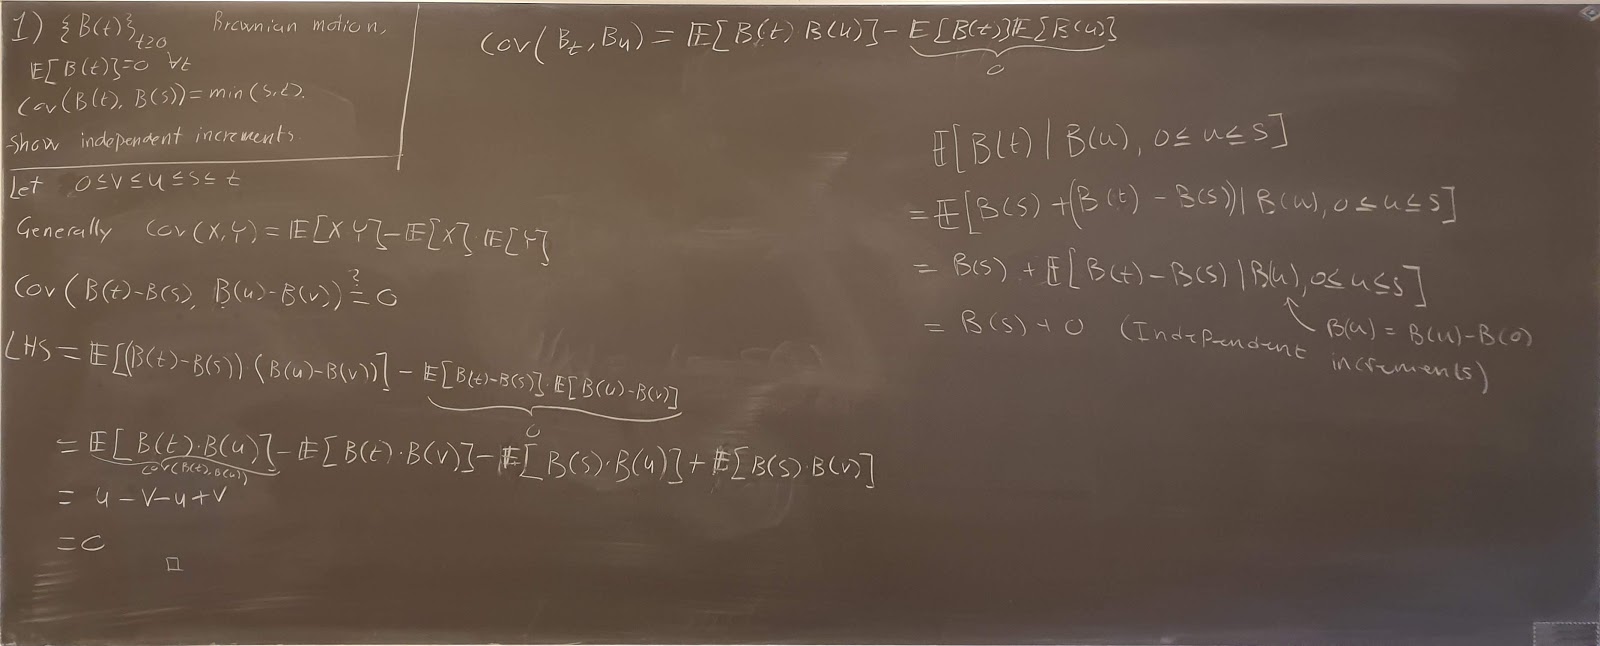 1) {B(t)}_{t≥0} Brownian motion,
𝔼[B(t)]=0 ∀t
Cov(B(t), B(s)) = min(s,t).
-Show independent increments.
Let 0≤v≤u≤s≤t
Generally Cov(X,Y) = 𝔼[XY]-𝔼[X]·𝔼[Y]
Cov(B(t)-B(s), B(u)-B(v)) ?= 0
LHS = 𝔼[(B(t)-B(s))·(B(u)-B(v))] - 𝔼[B(t)-B(s)]·𝔼[B(u)-B(v)]
0
= 𝔼[B(t)·B(u)] - 𝔼[B(t)·B(v)] - 𝔼[B(s)·B(u)] + 𝔼[B(s)·B(v)]
Cov(B(t),B(u))
= u-v-u+v
= 0
□
Cov(B_t, B_u) = 𝔼[B(t)·B(u)] - 𝔼[B(t)]𝔼[B(u)]
0
𝔼[B(t) | B(u), 0≤u≤s]
= 𝔼[B(s)+(B(t)-B(s)) | B(u), 0≤u≤s]
= B(s) + 𝔼[B(t)-B(s) | B(u), 0≤u≤s]
= B(s)+0 (Independent increments)
B(u) = B(u)-B(0)